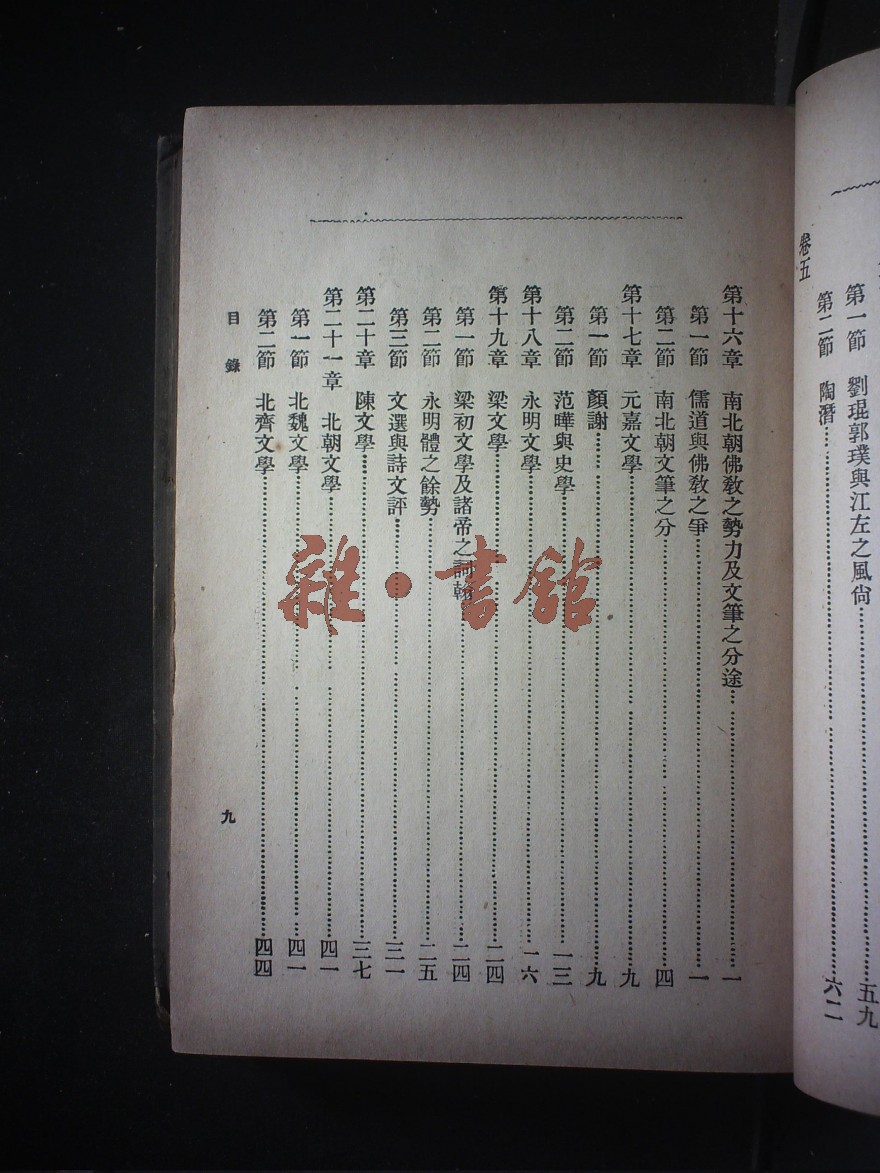 第一節 劉琨郭璞與江左之風尙……五九
第二節 陶潛……六二
卷五
第十六章 南北朝佛敎之勢力及文筆之分途……一
第一節 儒道與佛敎之爭……一
第二節 南北朝文筆之分……四
第十七章 元嘉文學……九
第一節 顏謝……九
第二節 范曄與史學……一三
第十八章 永明文學……一六
第十九章 梁文學……二四
第一節 梁初文學及諸帝之詞翰……二四
第二節 永明體之餘勢……二五
第三節 文選與詩文評……三一
第二十章 陳文學……三七
第二十一章 北朝文學……四一
第一節 北魏文學……四一
第二節 北齊文學……四四
目錄
九
雜·書館